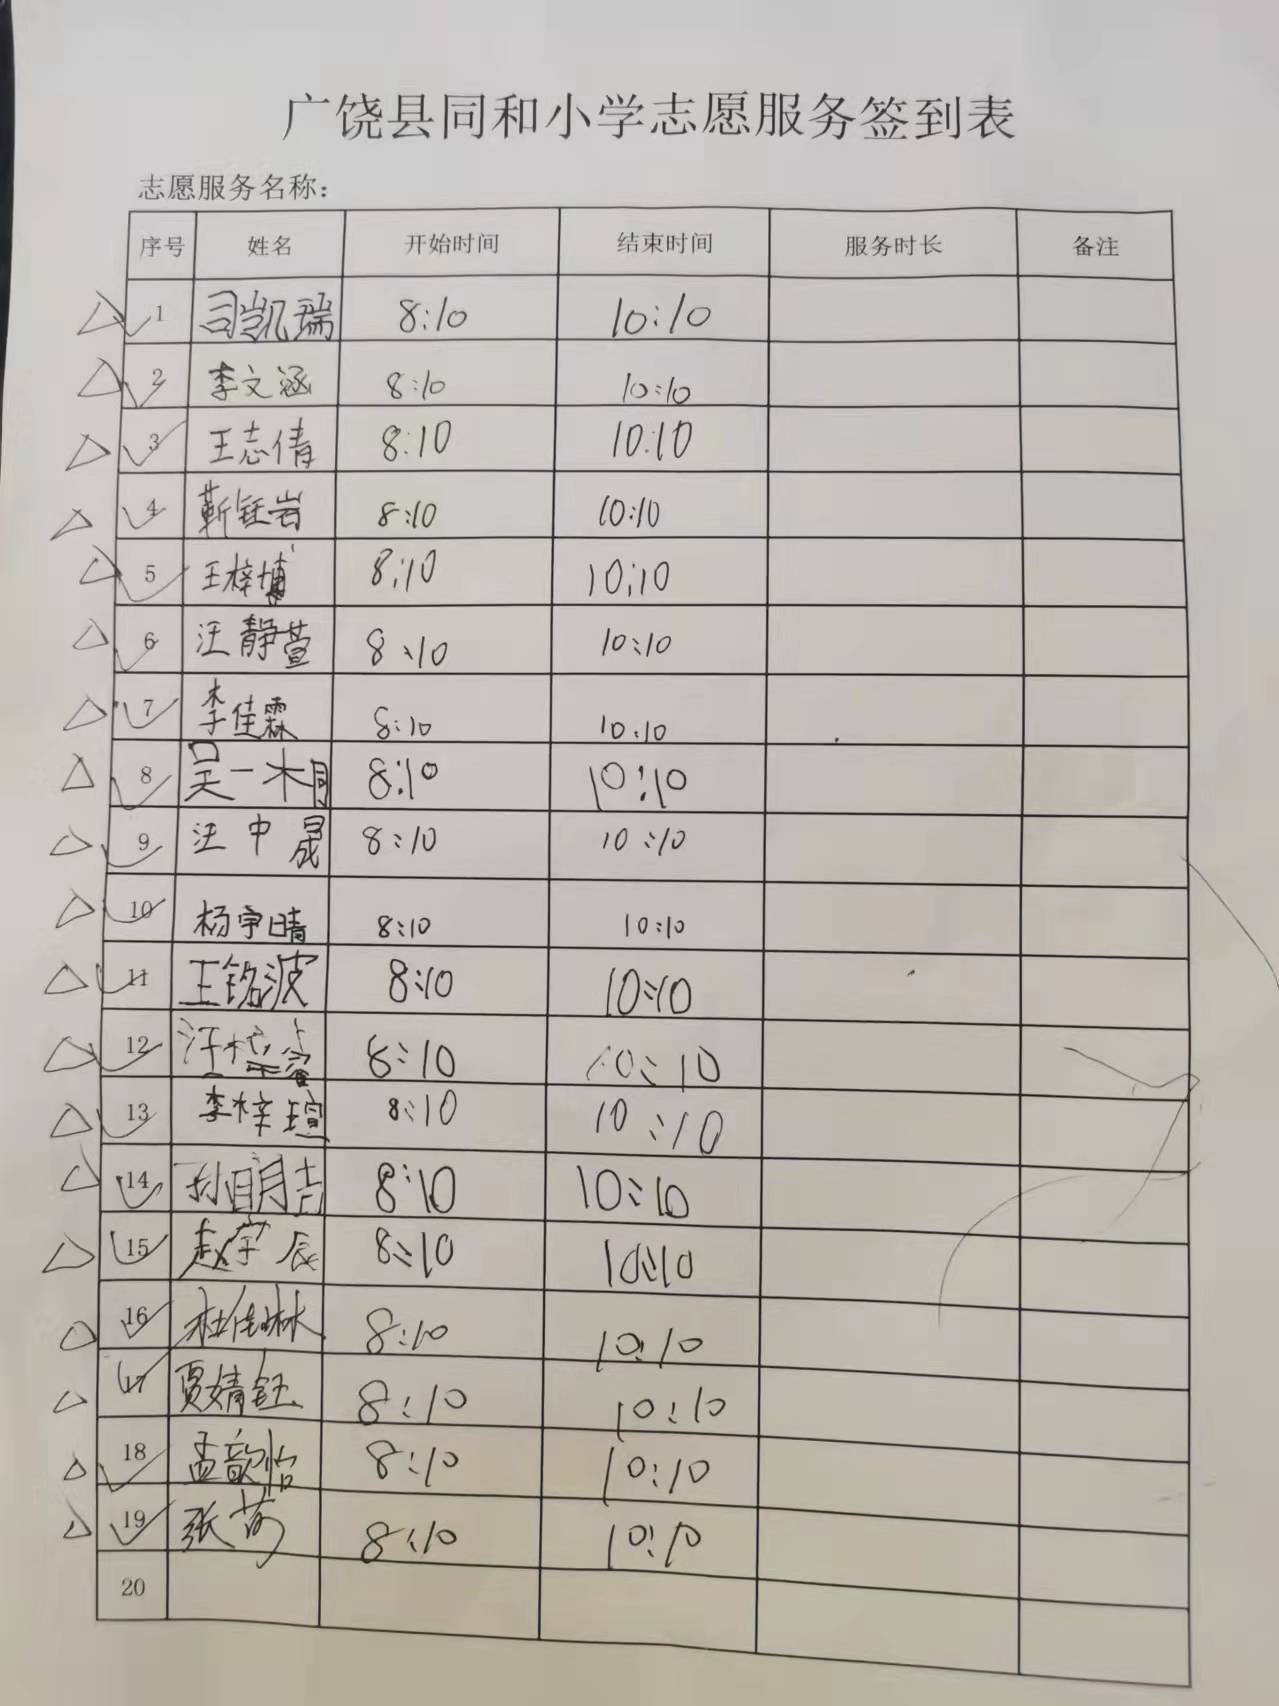 广饶县同和小学志愿服务签到表
志愿服务名称：
序号 姓名 开始时间 结束时间 服务时长 备注
1 司凯瑞 8:10 10:10
2 李文涵 8:10 10:10
3 王志倩 8:10 10:10
4 靳钰岩 8:10 10:10
5 王梓博 8:10 10:10
6 汪静萱 8:10 10:10
7 李佳霖 8:10 10:10
8 吴一桐 8:10 10:10
9 汪中晟 8:10 10:10
10 杨宇晴 8:10 10:10
11 王铭波 8:10 10:10
12 8:10 10:10
13 李梓瑄 8:10 10:10
14 孙明吉 8:10 10:10
15 赵宇辰 8:10 10:10
16 杜佳琳 8:10 10:10
17 贾婧钰 8:10 10:10
18 孟歆怡 8:10 10:10
19 张荷 8:10 10:10
20